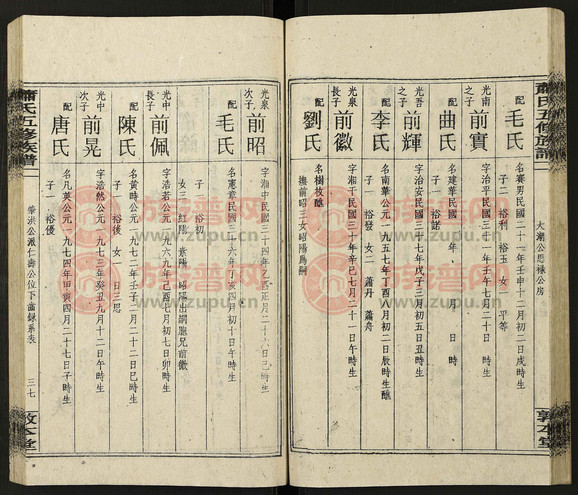 蕭氏五修族譜
大潮公思祿公房
敦本堂
配 毛氏
名賽男民國二十一年壬申十二月初二日戌時生
子二 裕利 裕玉 女一 平等
光南之子 前實
字治平民國三十一年壬午七月二十日 時生
配 曲氏
名建華民國 年 月 日 時
子一 裕諾
光吾之子 前輝
字治安民國三十七年戊子三月初五日丑時生
配 李氏
名南華公元一九五七年丁酉八月初二日辰時生
子一 裕發 女二 蕭丹 蕭舟
光泉長子 前徽
字湘壬民國三十年辛巳七月二十一日午時生
配 劉氏
名樹枝醮
撫前昭三女昭陽爲嗣
光泉次子 前昭
字湘中民國三十四年乙酉正月二十六日巳時生
配 毛氏
名憲章民國三十六年丁亥四月初十日午時生
子一 裕初
女三 紅陽 素陽 昭陽出嗣胞兄前徽
光中長子 前佩
字浩若公元一九六九年己酉七月初七日卯時生
配 陳氏
名黃時公元一九七二年壬子二月二十二日巳時生
子一 裕後 女一 日三思
光中次子 前晃
字浩然公元一九七三年癸丑九月十二日午時生
配 唐氏
名凡英公元一九七四年甲寅四月二十七日子時生
子一 裕優
蕭氏五修族譜
華洪公派仁壽公位下齒錄系表
三七
敦本堂
族譜网
www.zupu.cn
族譜网
www.zupu.cn